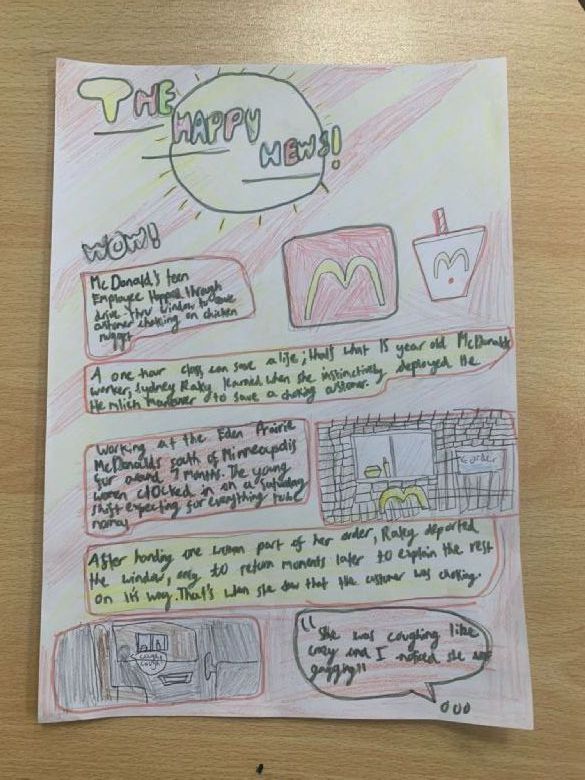 THE
HAPPY
NEWS!
WOW!
McDonald's teen
Employee Hopped through
drive-thru window to save
customer choking on chicken
nugget
A one hour class can save a life; that's what 15 year old McDonalds
worker, Sydney Raley learned when she instinctively deployed the
Hemlich maneuver to save a choking customer.
Working at the Eden Prairie
McDonald's south of Minneapolis
for around 7 months. The young
women clocked in on a saturday
shift expecting for everything to be
normal
order
After handing one woman part of her order, Raley departed
the window, only to return moments later to explain the rest
on it's way. That's when she saw that the customer was choking.
cough
cough
"She was coughing like
crazy and I noticed she was
gagging"